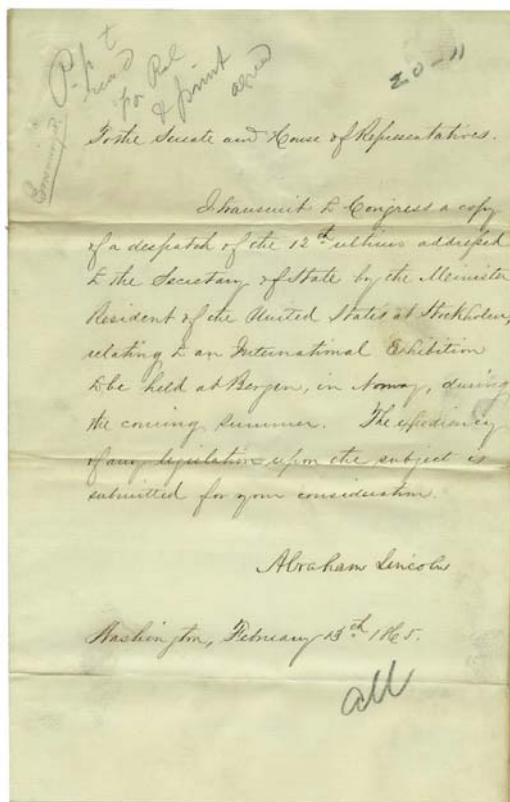 20-11
P-p t
read
for Rel
& print
agreed
To the Senate and House of Representatives.
I transmit to Congress a copy
of a despatch of the 12th ultimo addressed
to the Secretary of State by the Minister
Resident of the United States at Stockholm,
relating to an International Exhibition
to be held at Bergen, in Norway, during
the coming summer. The expediency
of any legislation upon the subject is
submitted for your consideration.
Abraham Lincoln
Washington, February 13th 1865.
all